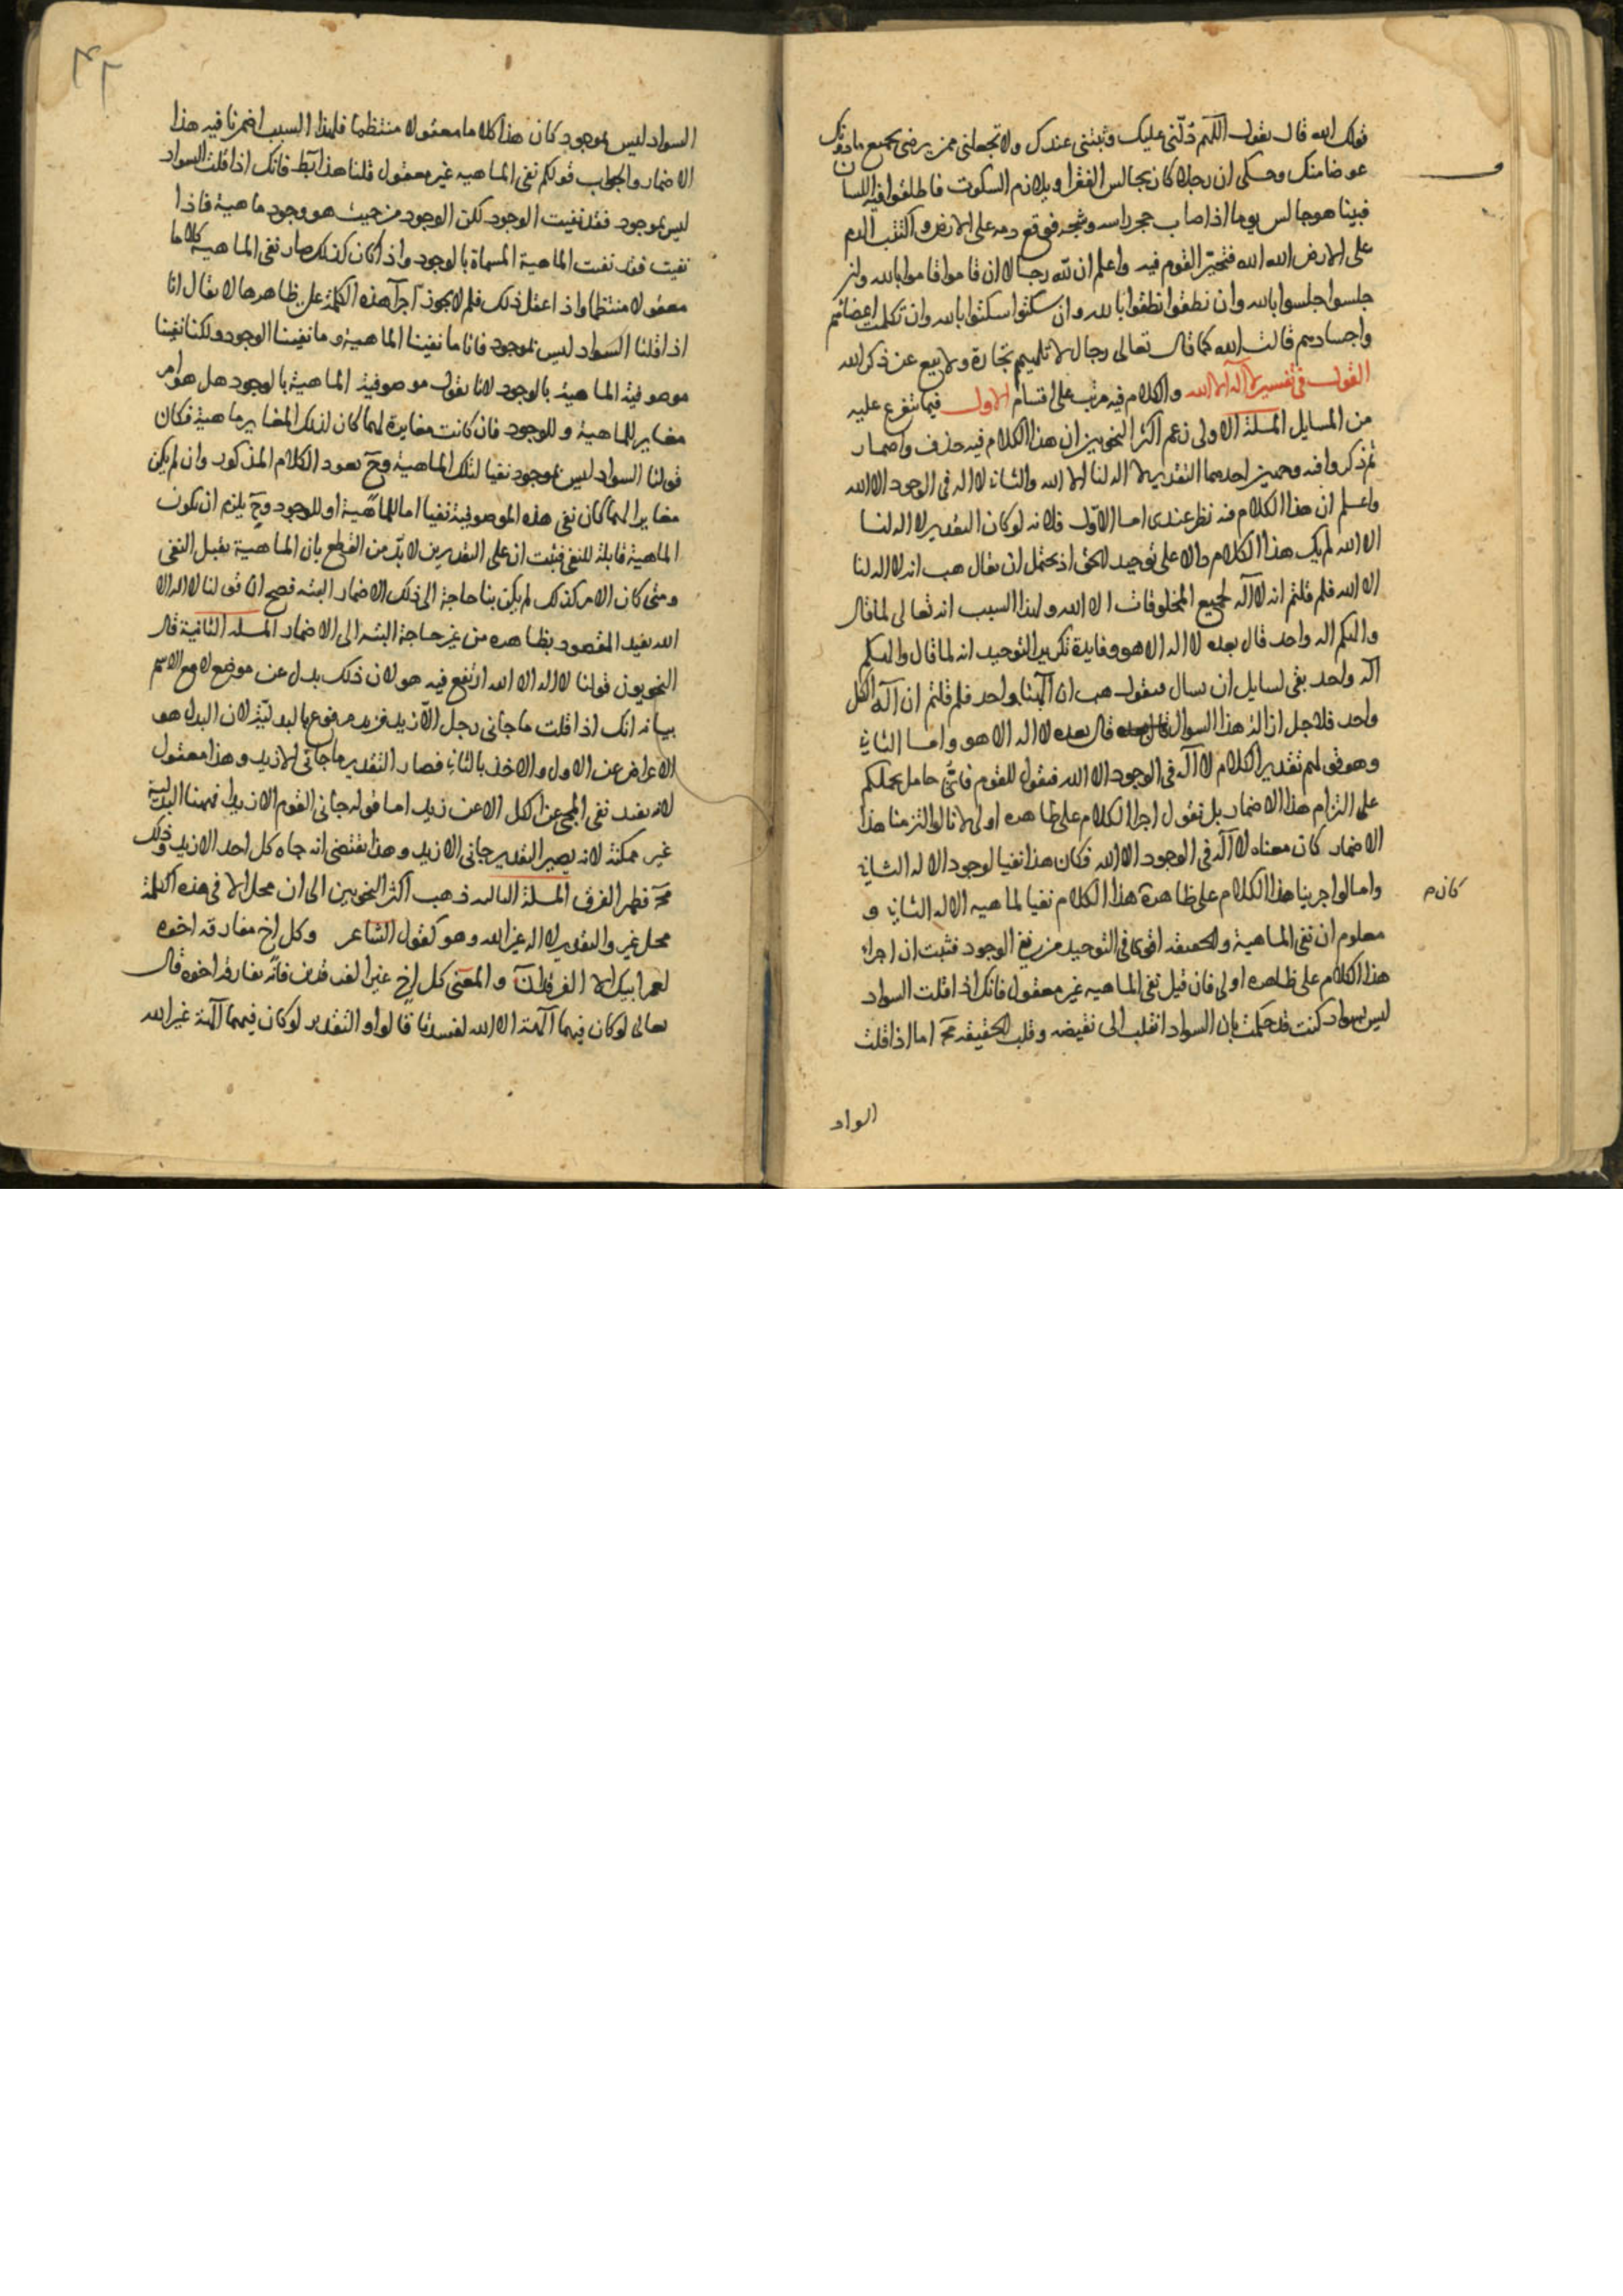 قولك الله قال يقول اللهم دلني عليك وثبتني عندك ولا تجعلني ممن يرضى بجميع ما دونك
عوضا منك وحكى ان رجلا كان يجالس الفقرا ويلازم السكوت فاطلقوا فيه اللسان
فبينا هو جالس يوما اذ اصاب حجر راسه وشجه فوقع دمه على الارض واكتتب الدم
على الارض الله الله فتحير القوم فيه واعلم ان لله رجالا ان قاموا قاموا بالله وان
جلسوا جلسوا بالله وان نطقوا نطقوا بالله وان سكتوا سكتوا بالله وان تكلمت اعضائهم
واجسادهم قالت الله كما قال تعالى رجال لا تلهيهم تجارة ولا بيع عن ذكر الله
القول في تفسير لا اله الا الله والكلام فيه مرتب على اقسام الاول فيما يتفرع عليه
من المسايل المسلة الاولى زعم اكثر النحويين ان هذا الكلام فيه حذف واضمار
ثم ذكروا فيه وجهين احدهما التقدير لا اله لنا الا الله والثاني لا اله في الوجود الا الله
واعلم ان هذا الكلام فيه نظر عندي اما الاول فلانه لو كان التقدير لا اله لنا
الا الله لم يك هذا الكلام دالا على توحيد الحق اذ يحتمل ان يقال هب انه لا اله لنا
الا الله فلم قلتم انه لا اله لجميع المخلوقات الا الله ولهذا السبب انه تعالى لما قال
والهكم اله واحد قال بعده لا اله الا هو وفايدة تكرير التوحيد انه لما قال والهكم
اله واحد بقي لسايل ان يسال فيقول هب ان الهنا واحد فلم قلتم ان اله الكل
واحد فلاجل ازالة هذا السوال قال بعده لا اله الا هو واما الثاني
وهو قولهم تقدير الكلام لا اله في الوجود الا الله فنقول للقوم فاي حامل يحملكم
على التزام هذا الاضمار بل نقول اجرا الكلام على ظاهره اولى لانا لو التزمنا هذا
الاضمار كان معناه لا اله في الوجود الا الله فكان هذا نفيا لوجود الاله الثاني
واما لو اجرينا هذا الكلام على ظاهره هذا الكلام نفيا لماهيه الاله الثاني و
كان م
معلوم ان نفي الماهية والحقيقه اقوى في التوحيد من نفي الوجود فثبت ان اجراء
هذا الكلام على ظاهره اولى فان قيل نفي الماهيه غير معقول فانك اذا قلت السواد
ليس بسواد كنت قد حكمت بان السواد انقلب الى نقيضه وقلب الحقيقه مح اما اذا قلت
السواد ليس بموجود كان هذا كلاما معقولا منتظما فلهذا السبب اضمرنا فيه هذا
الاضمار والجواب قولكم نفي الماهيه غير معقول قلنا هذا بط فانك اذا قلت السواد
ليس بموجود فقد نفيت الوجود لكن الوجود من حيث هو وجود ماهية فاذا
نفيت فقد نفيت الماهية المسماة بالوجود واذا كان كذلك صار نفي الماهية كلاما
معقولا منتظما واذا عقل ذلك فلم لا يجوز اجرا هذه الكلمة على ظاهرها لا يقال انا
اذا قلنا السواد ليس بموجود فانا ما نفينا الماهية وما نفينا الوجود ولكنا نفينا
موصوفية الماهية بالوجود لانا نقول موصوفية الماهية بالوجود هل هو امر
مغاير للماهية وللوجود فان كانت مغايرة لهما كان لذلك المغاير ماهية فكان
قولنا السواد ليس بموجود نفيا لتلك الماهية وح يعود الكلام المذكور وان لم يكن
مغايرا لهما كان نفي هذه الموصوفية نفيا اما للماهية او للوجود وح يلزم ان يكون
الماهية قابلة للنفي فثبت ان على التقديرين لا بد من القطع بان الماهية تقبل النفي
ومتى كان الامر كذلك لم يكن بنا حاجة الى ذلك الاضمار البته فصح ان قولنا لا اله الا
الله يفيد المقصود بظاهره من غير حاجة البته الى الاضمار المسله الثانية قال
النحويون قولنا لا اله الا الله ارتفع فيه هو لان ذلك بدل عن موضع لا مع الاسم
بيانه انك اذا قلت ما جاني رجل الا زيد فزيد مرفوع بالبدلية لان البدل هو
الاعراض عن الاول والاخذ بالثاني فصار التقدير ما جاني الا زيد وهذا معقول
لانه يفيد نفي المجئ عن الكل الا عن زيد اما قوله جاني القوم الا زيدا فههنا البدلية
غير ممكنة لانه يصير التقدير جاني الا زيد وهذا يقتضي انه جاه كل احد الا زيد وذلك
مح فظهر الفرق المسلة الثالثه ذهب اكثر النحويين الى ان محل الا في هذه الكلمة
محل غير والتقدير لا اله غير الله وهو كقول الشاعر وكل اخ مفارقه اخوه
لعمر ابيك الا الفرقدان والمعنى كل اخ غير الفرقدين فانه يفارقه اخوه قال
تعالى لو كان فيهما الهة الا الله لفسدتا قالوا والتقدير لو كان فيهما الهة غير الله